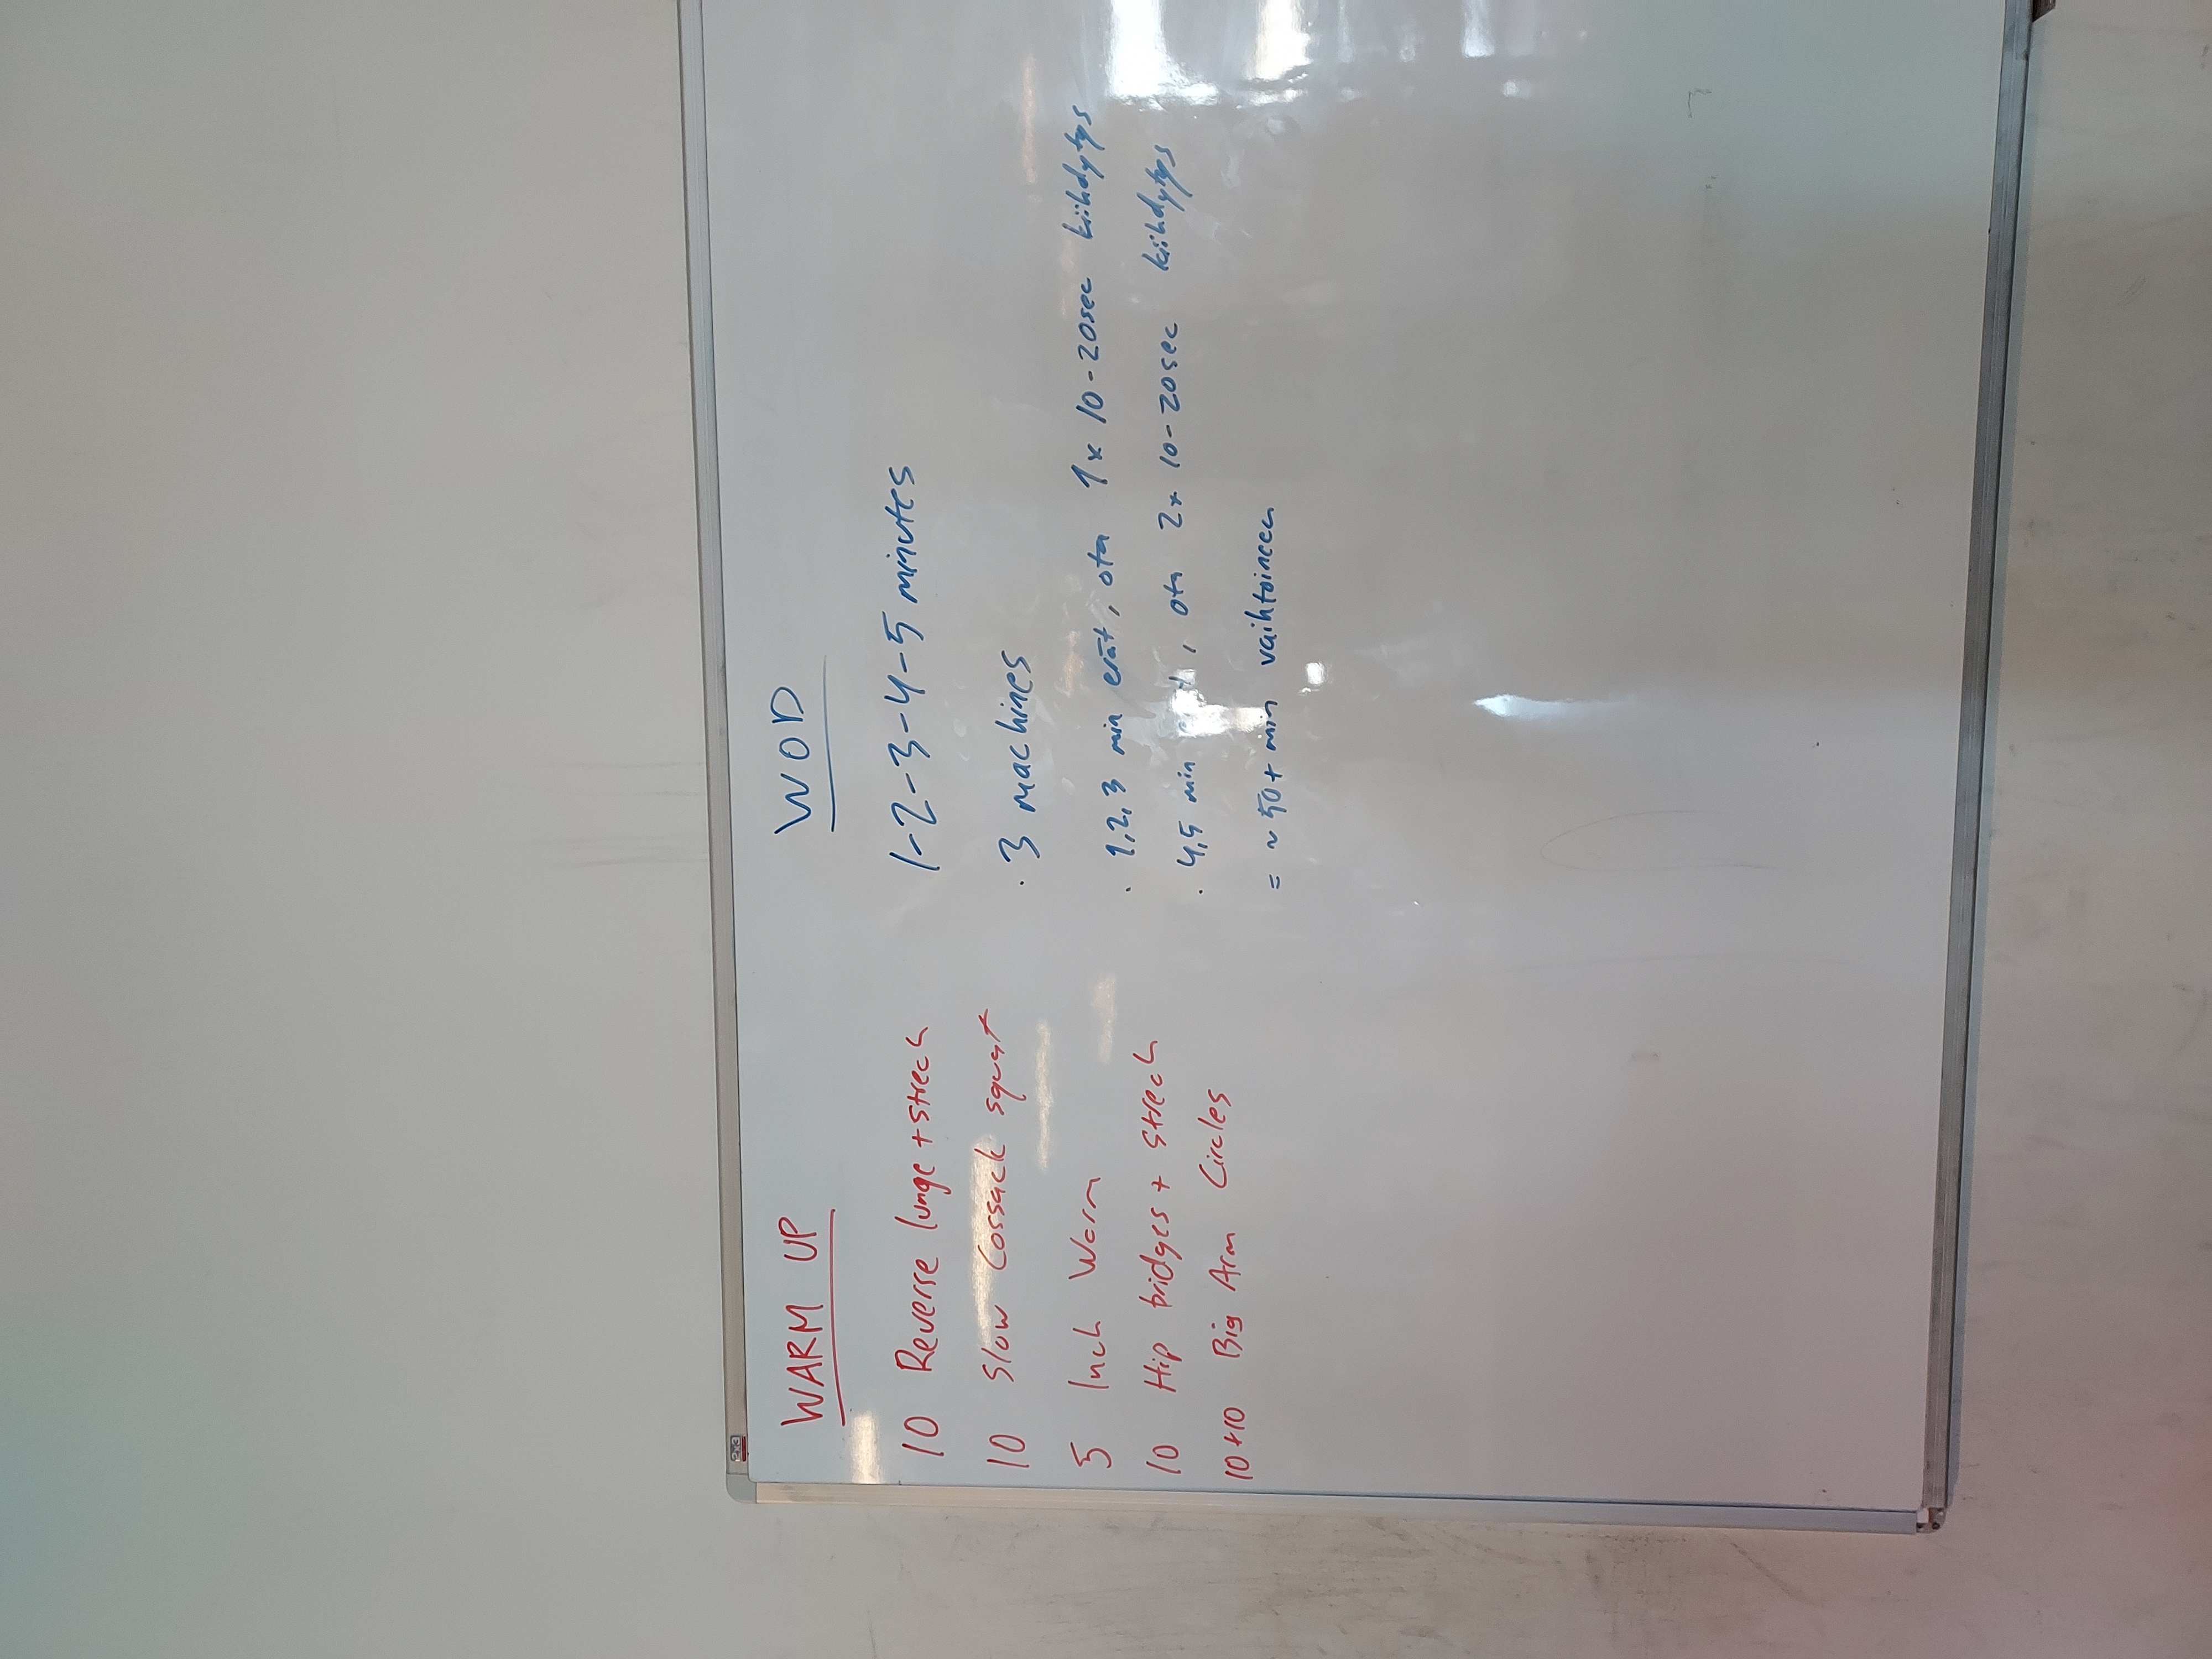 WARM UP
10 Reverse lunge + strech
10 Slow Cossack squat
5 Inch Worm
10 Hip bridges + strech
10+10 Big Arm Circles
WOD
1-2-3-4-5 minutes
· 3 machines
· 1,2,3 min erät, ota 1x 10-20sec kiihdytys
· 4,5 min , ota 2x 10-20sec kiihdytys
= ~ 50+ min vaihtoineen